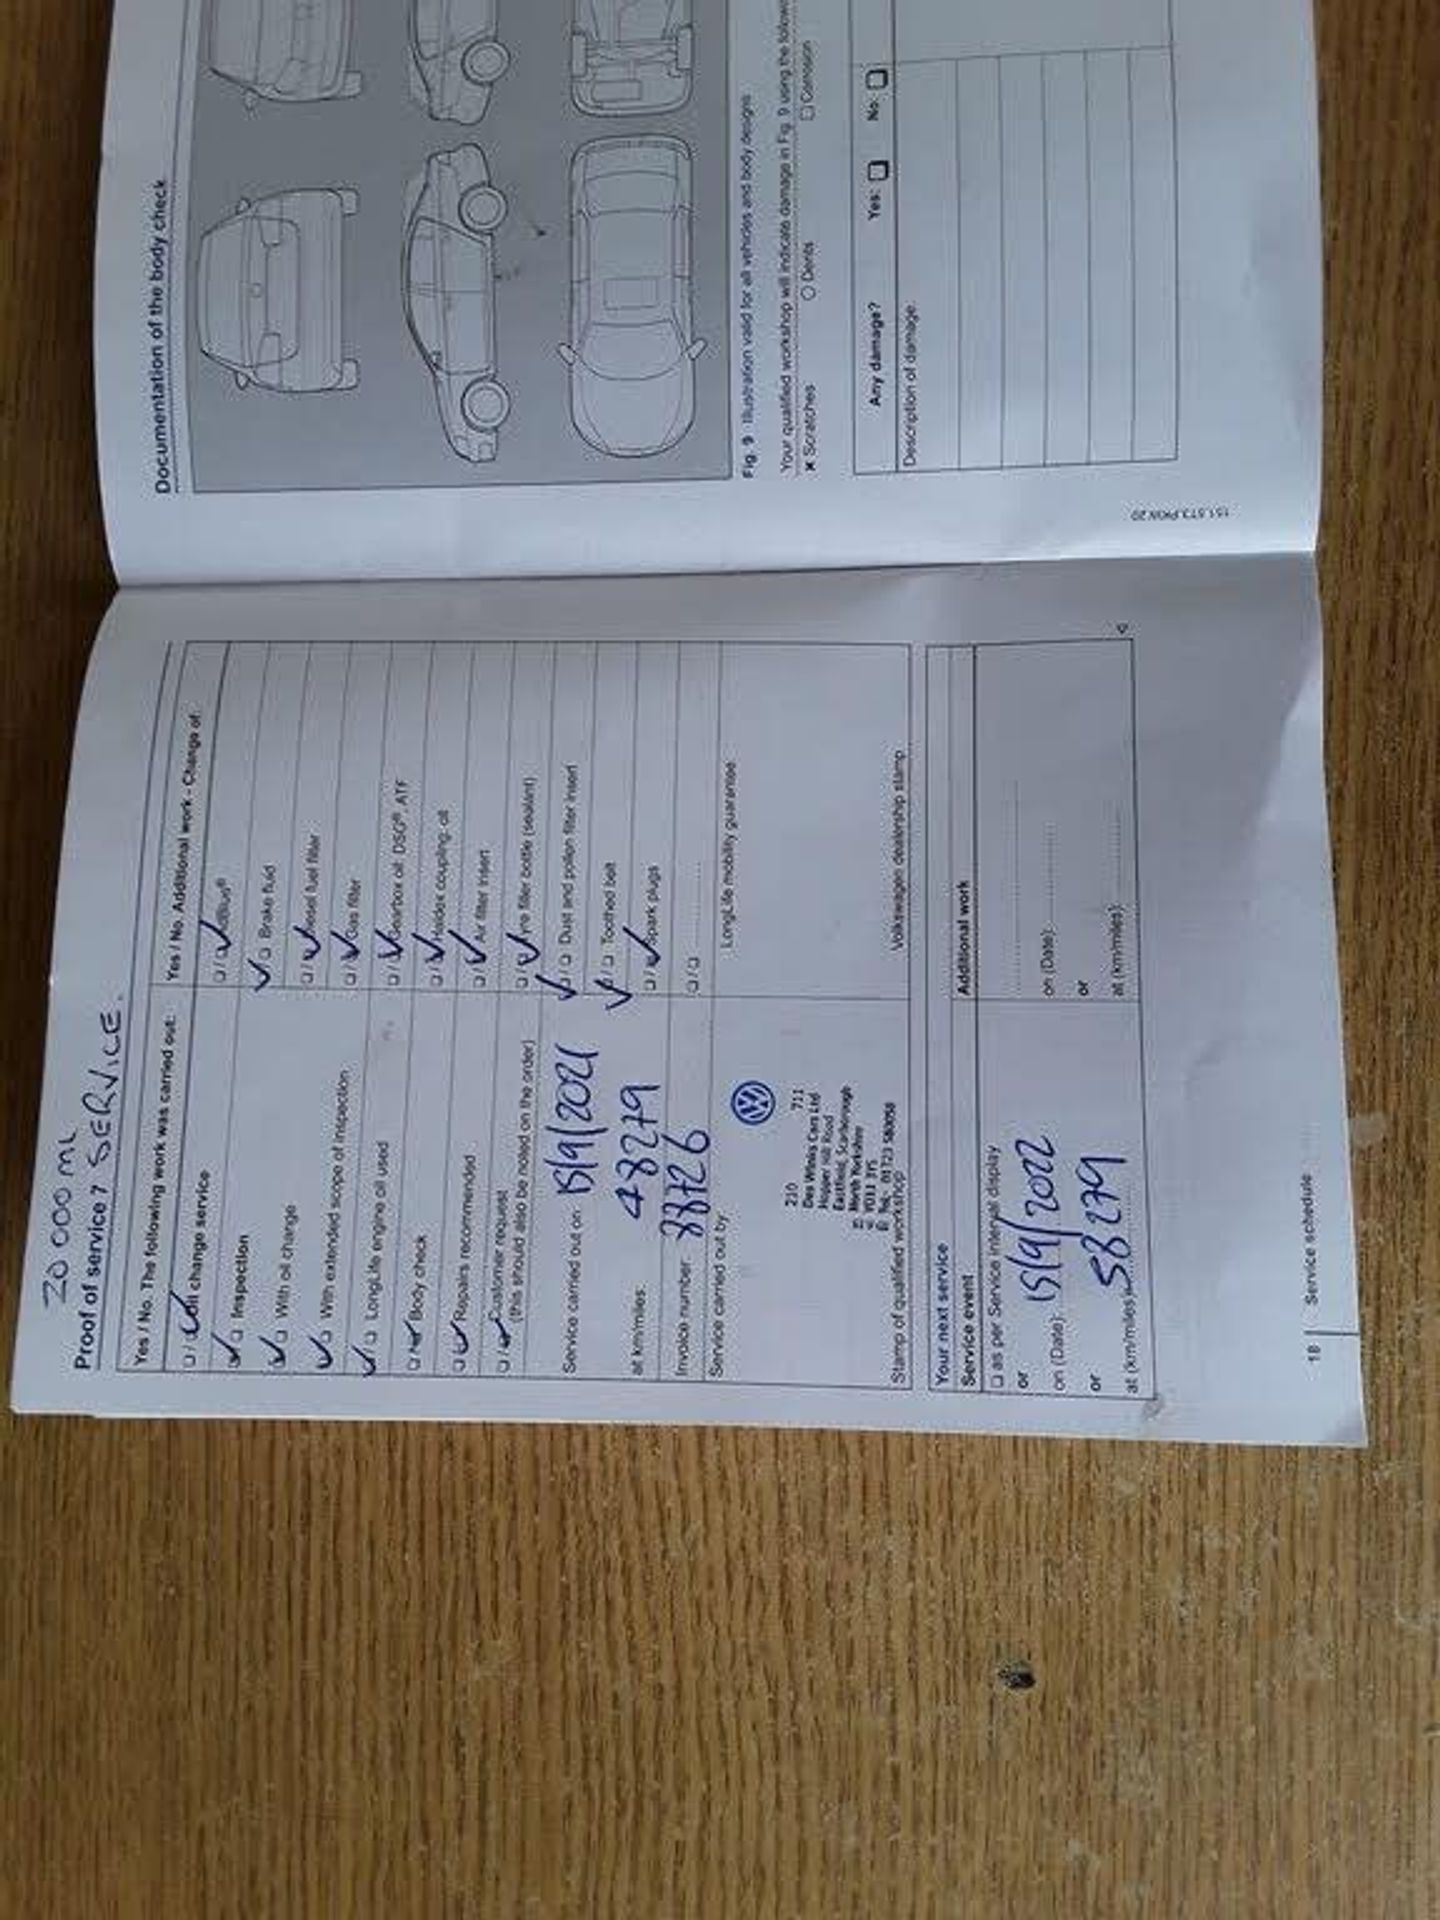 20 000 ML
Proof of service 7 SERVICE.
Yes / No. The following work was carried out:
❏ / ✓ Oil change service
✓ / ❏ Inspection
✓ / ❏ With oil change
✓ / ❏ With extended scope of inspection
✓ / ❏ LongLife engine oil used
❏ / ✓ Body check
❏ / ✓ Repairs recommended
❏ / ✓ Customer request
(this should also be noted on the order)
Service carried out on 15/9/2021
at km/miles: 48279
Invoice number 88726
Service carried out by
210 711
Des Winks Cars Ltd
Hopper Hill Road
Eastfield, Scarborough
North Yorkshire
YO11 3YS
Tel: 01723 580058
Stamp of qualified workshop
Yes / No. Additional work - Change of:
❏ / ✓ AdBlue®
✓ / ❏ Brake fluid
❏ / ✓ Diesel fuel filter
❏ / ✓ Gas filter
❏ / ✓ Gearbox oil: DSG®, ATF
❏ / ✓ Haldex coupling: oil
❏ / ✓ Air filter insert
❏ / ✓ Tyre filler bottle (sealant)
✓ / ❏ Dust and pollen filter insert
✓ / ❏ Toothed belt
❏ / ✓ Spark plugs
❏ / ❏ ............
LongLife mobility guarantee
Volkswagen dealership stamp
Your next service
Service event
❏ as per Service interval display
or
on (Date): 15/9/2022
or
at (km/miles) 58279
Additional work
on (Date):
or
at (km/miles):
18 Service schedule
Documentation of the body check
Fig. 9 Illustration valid for all vehicles and body designs
Your qualified workshop will indicate damage in Fig. 9 using the
× Scratches ○ Dents ❏ Corrosion
Any damage? Yes: ❏ No: ❏
Description of damage:
151.5T3.PKW.20